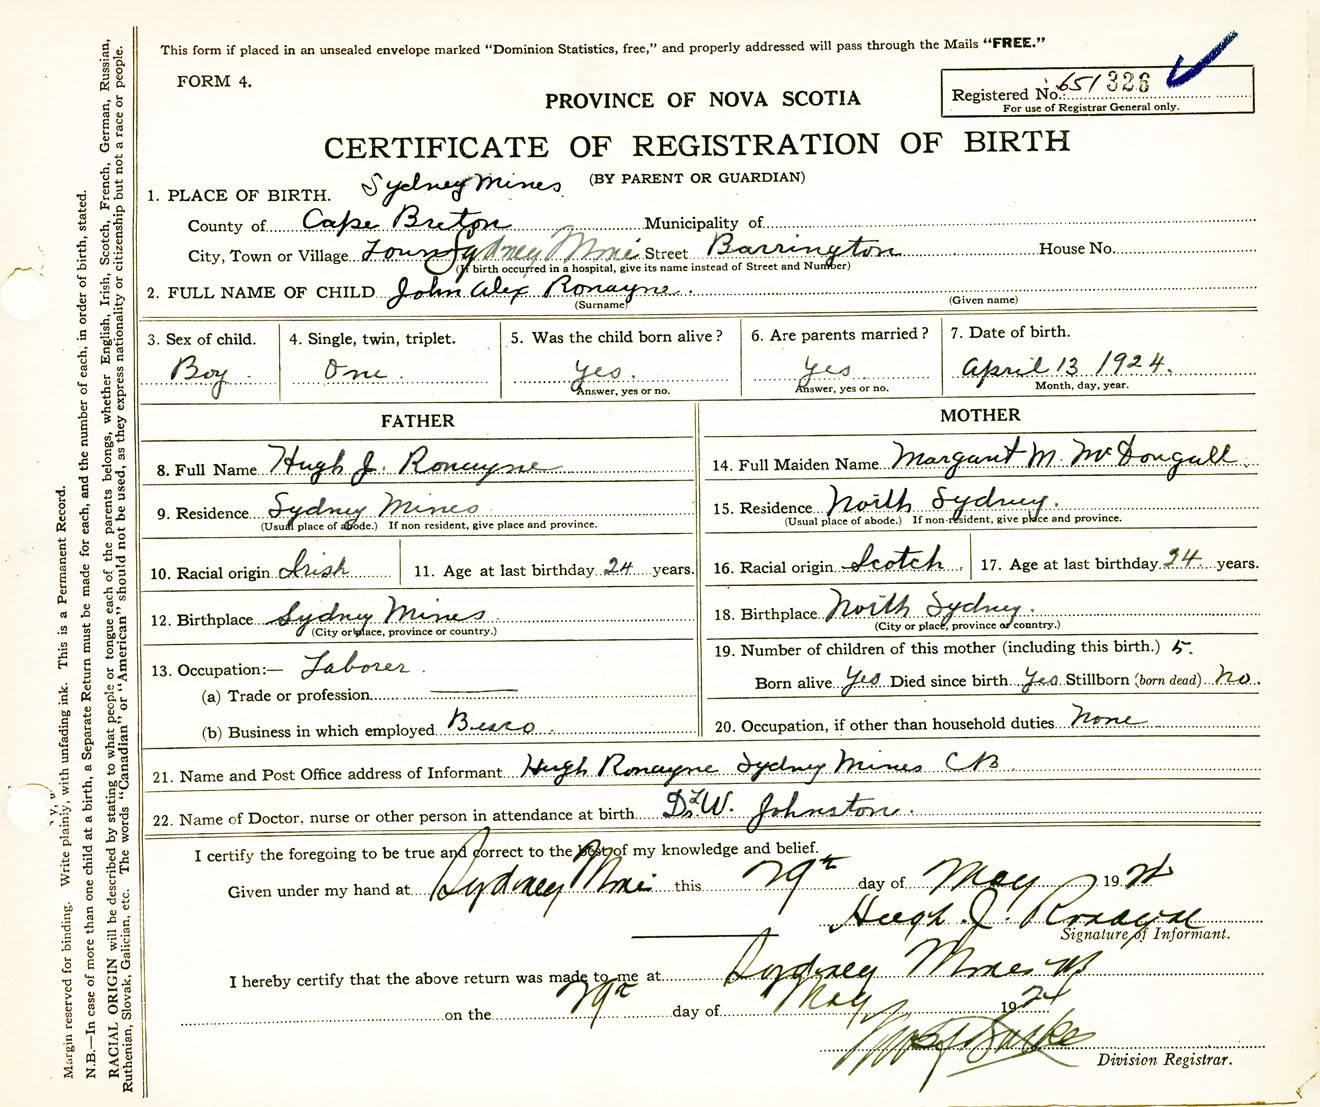 This form if placed in an unsealed envelope marked "Dominion Statistics, free," and properly addressed will pass through the Mails "FREE."
FORM 4.
Registered No. 651 326
For use of Registrar General only.
PROVINCE OF NOVA SCOTIA
CERTIFICATE OF REGISTRATION OF BIRTH
(BY PARENT OR GUARDIAN)
1. PLACE OF BIRTH. Sydney Mines
County of Cape Breton Municipality of
City, Town or Village Town Sydney Mines Street Barrington House No.
(If birth occurred in a hospital, give its name instead of Street and Number)
2. FULL NAME OF CHILD John Alex Ronayne.
(Surname) (Given name)
3. Sex of child. 4. Single, twin, triplet. 5. Was the child born alive? 6. Are parents married? 7. Date of birth.
Boy. One. yes. yes April 13 1924.
Answer, yes or no. Answer, yes or no. Month, day, year.
FATHER MOTHER
8. Full Name Hugh J. Ronayne 14. Full Maiden Name Margaret M. McDougall.
9. Residence Sydney Mines 15. Residence North Sydney.
(Usual place of abode.) If non-resident, give place and province. (Usual place of abode.) If non-resident, give place and province.
10. Racial origin Irish 11. Age at last birthday 24 years. 16. Racial origin Scotch. 17. Age at last birthday 24 years.
12. Birthplace Sydney Mines. 18. Birthplace North Sydney.
(City or place, province or country.) (City or place, province or country.)
13. Occupation:— Laborer. 19. Number of children of this mother (including this birth.) 5.
(a) Trade or profession Born alive Yes Died since birth yes Stillborn (born dead) No.
(b) Business in which employed Besco. 20. Occupation, if other than household duties None
21. Name and Post Office address of Informant Hugh Ronayne Sydney Mines CB
22. Name of Doctor, nurse or other person in attendance at birth Dr. L. W. Johnston.
I certify the foregoing to be true and correct to the best of my knowledge and belief.
Given under my hand at Sydney Mines this 29th day of May 1924
Hugh J. Ronayne
Signature of Informant.
I hereby certify that the above return was made to me at Sydney Mines
on the 29th day of May 1924
Division Registrar.
Margin reserved for binding. Write plainly, with unfading ink. This is a Permanent Record.
N.B.—In case of more than one child at a birth, a Separate Return must be made for each, and the number of each, in order of birth, stated.
RACIAL ORIGIN will be described by stating to what people or tongue each of the parents belongs, whether English, Irish, Scotch, French, German, Russian,
Ruthenian, Slovak, Galician, etc. The words "Canadian" or "American" should not be used, as they express nationality or citizenship but not a race or people.